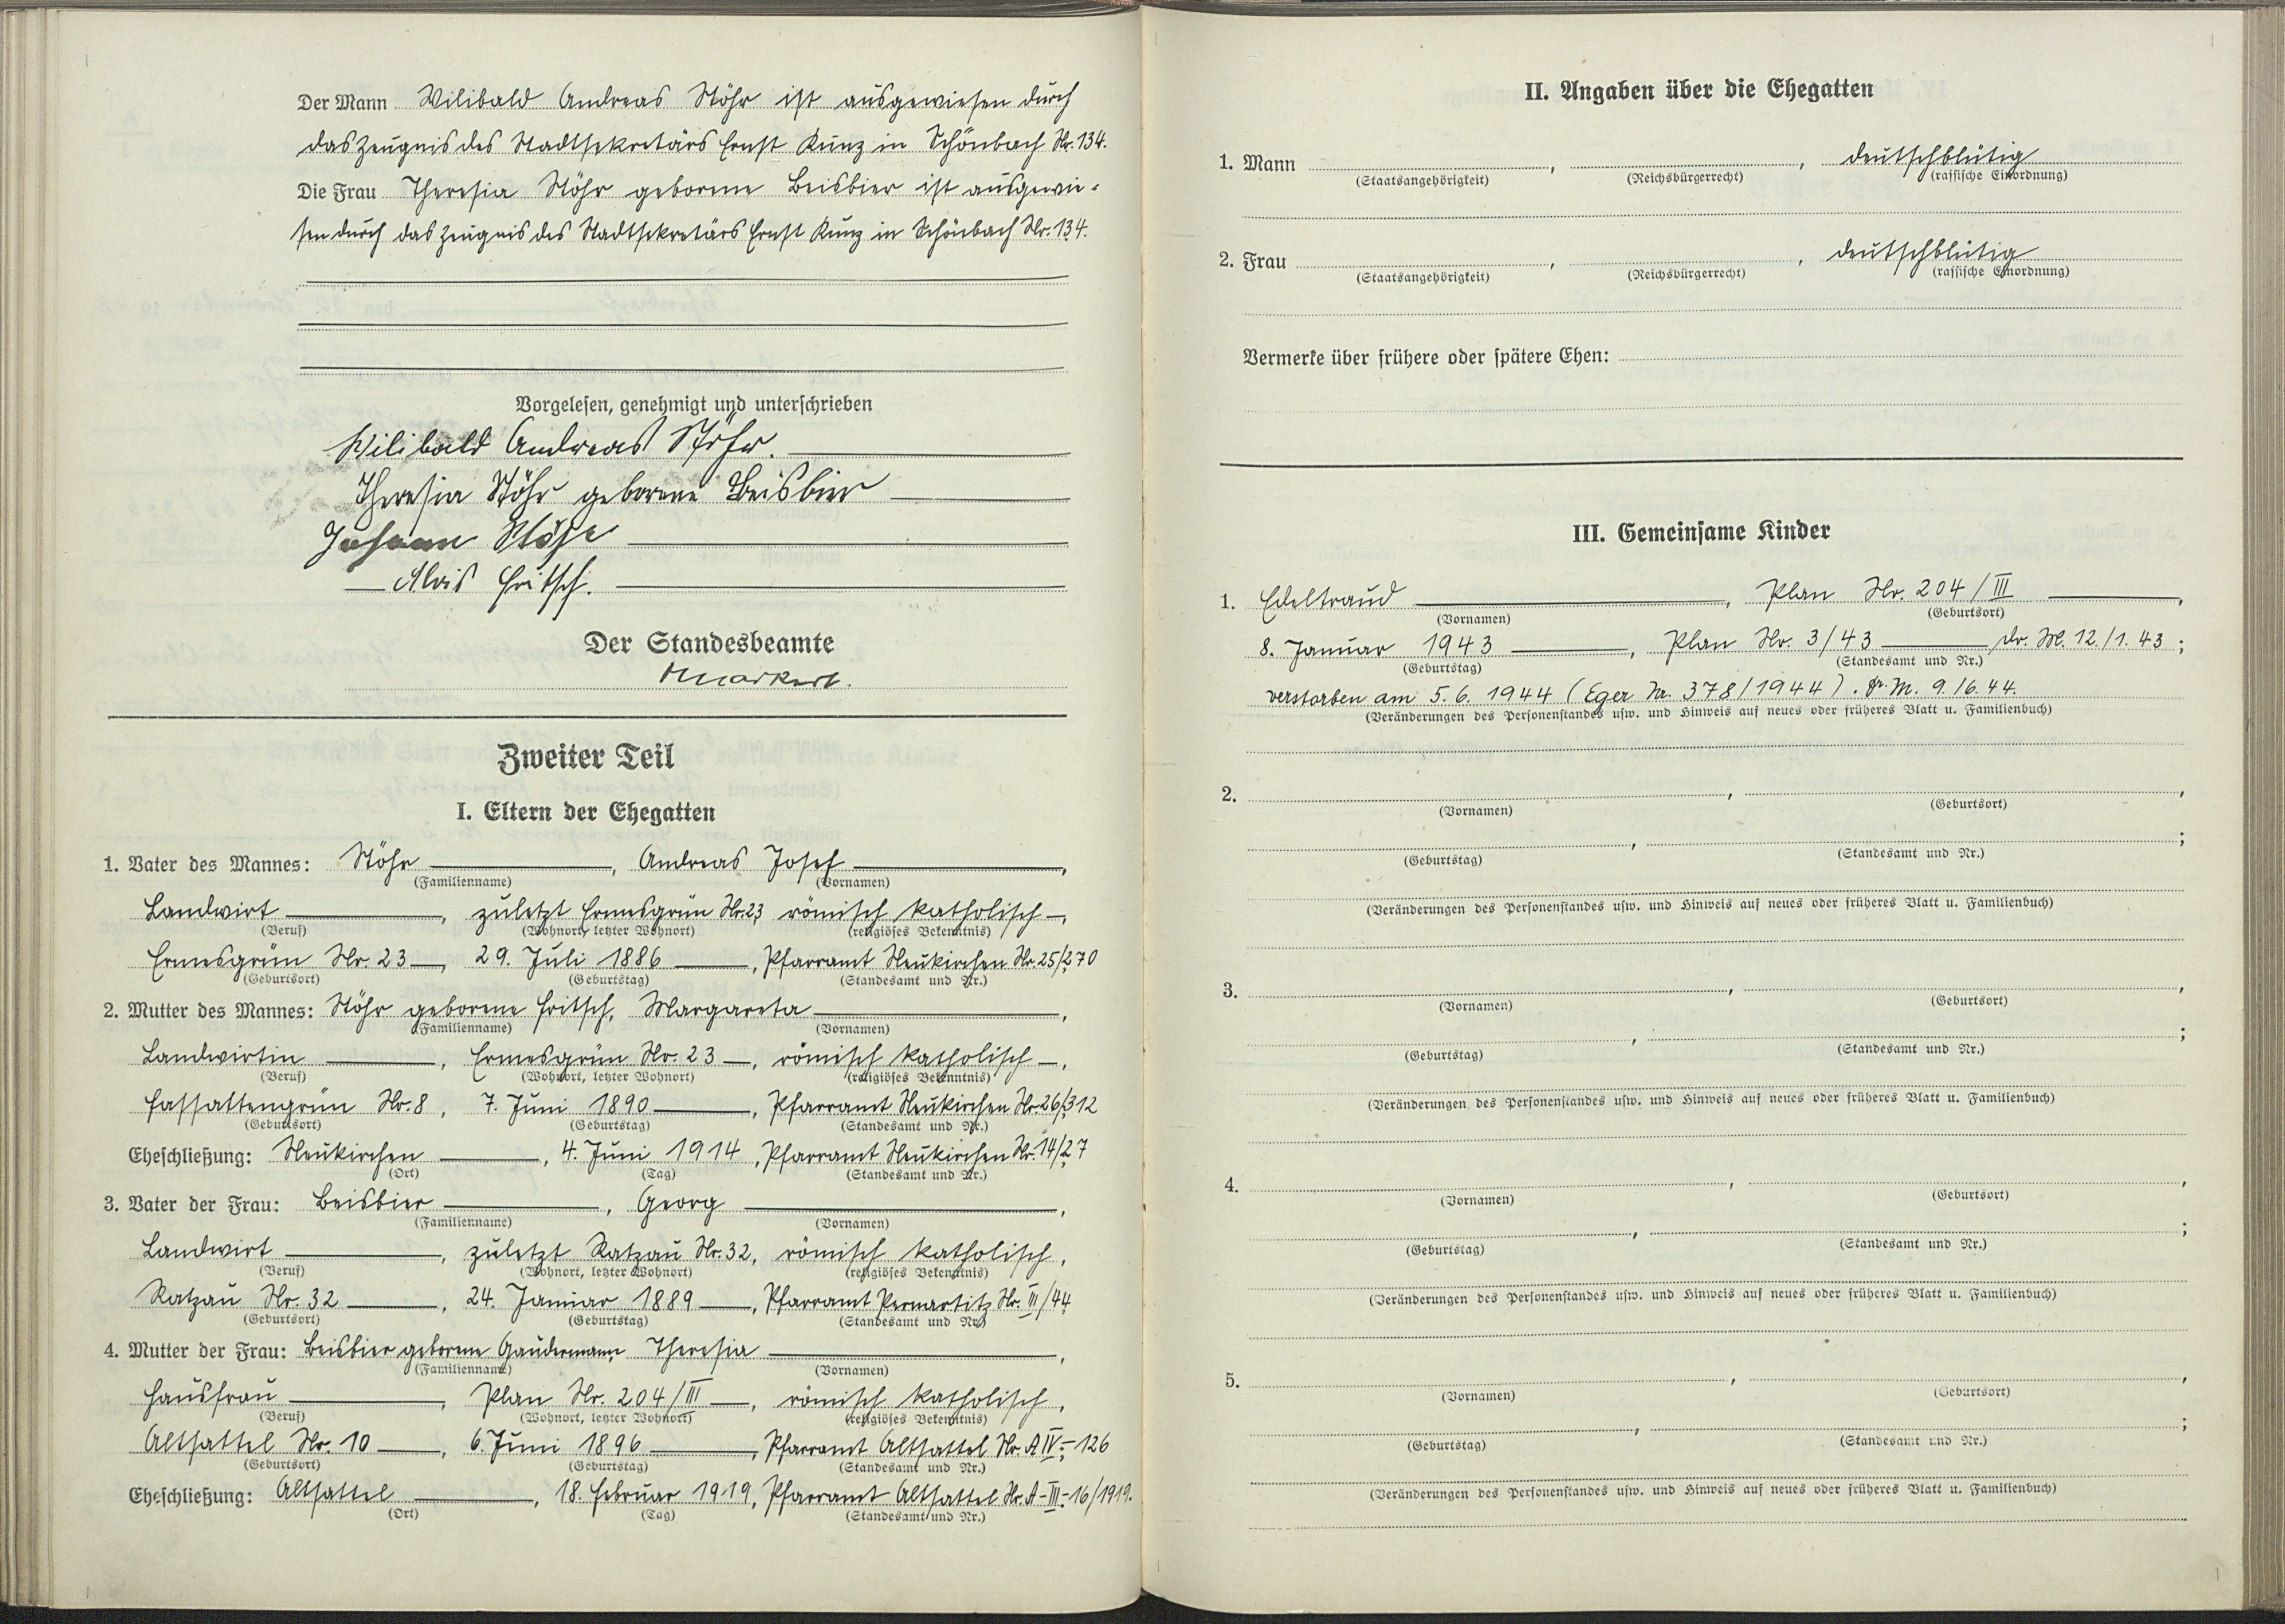 Der Mann Wilibald Andreas Stöhr ist ausgewiesen durch
das Zeugnis des Stadtsekretärs Ernst Kunz in Schönbach Nr. 134.
Die Frau Theresia Stöhr geborene Beisbier ist ausgewie-
sen durch das Zeugnis des Stadtsekretärs Ernst Kunz in Schönbach Nr. 134.
Vorgelesen, genehmigt und unterschrieben
Wilibald Andreas Stöhr.
Theresia Stöhr geborene Beisbier
Johann
Alois Fritsch.
Der Standesbeamte
Markert.
Zweiter Teil
I. Eltern der Ehegatten
1. Vater des Mannes: Stöhr, Andreas Josef,
(Familienname) (Vornamen)
Landwirt, zuletzt Ermesgrün Nr. 23 römisch katholisch,
(Beruf) (Wohnort, letzter Wohnort) (religiöses Bekenntnis)
Ermesgrün Nr. 23, 29. Juli 1886, Pfarramt Neukirchen Nr. 25/270
(Geburtsort) (Geburtstag) (Standesamt und Nr.)
2. Mutter des Mannes: Stöhr geborene Fritsch, Margareta,
(Familienname) (Vornamen)
Landwirtin, Ermesgrün Nr. 23, römisch katholisch,
(Beruf) (Wohnort, letzter Wohnort) (religiöses Bekenntnis)
Fassattengrün Nr. 8, 7. Juni 1890, Pfarramt Neukirchen Nr. 26/312
(Geburtsort) (Geburtstag) (Standesamt und Nr.)
Eheschließung: Neukirchen, 4. Juni 1914, Pfarramt Neukirchen Nr. 14/27
(Ort) (Tag) (Standesamt und Nr.)
3. Vater der Frau: Beisbier, Georg,
(Familienname) (Vornamen)
Landwirt, zuletzt Ratzau Nr. 32, römisch katholisch,
(Beruf) (Wohnort, letzter Wohnort) (religiöses Bekenntnis)
Ratzau Nr. 32, 24. Januar 1889, Pfarramt Pernartitz Nr. III/44
(Geburtsort) (Geburtstag) (Standesamt und Nr.)
4. Mutter der Frau: Beisbier geborene Gaudermann, Theresia,
(Familienname) (Vornamen)
Hausfrau, Plan Nr. 204/III, römisch katholisch,
(Beruf) (Wohnort, letzter Wohnort) (religiöses Bekenntnis)
Altsattel Nr. 10, 6. Juni 1896, Pfarramt Altsattel Nr. A IV-126
(Geburtsort) (Geburtstag) (Standesamt und Nr.)
Eheschließung: Altsattel, 18. Februar 1919, Pfarramt Altsattel Nr. A-III-16/1919.
(Ort) (Tag) (Standesamt und Nr.)
II. Angaben über die Ehegatten
1. Mann , , deutschblütig
(Staatsangehörigkeit) (Reichsbürgerrecht) (rassische Einordnung)
2. Frau , , deutschblütig
(Staatsangehörigkeit) (Reichsbürgerrecht) (rassische Einordnung)
Vermerke über frühere oder spätere Ehen:
III. Gemeinsame Kinder
1. Edeltraud, Plan Nr. 204/III,
(Vornamen) (Geburtsort)
8. Januar 1943, Plan Nr. 3/43 Dr. M. 12./1.43;
(Geburtstag) (Standesamt und Nr.)
verstorben am 5.6.1944 (Eger Nr. 378/1944). Dr. M. 9./6.44.
(Veränderungen des Personenstandes usw. und Hinweis auf neues oder früheres Blatt u. Familienbuch)
2. , ,
(Vornamen) (Geburtsort)
, ;
(Geburtstag) (Standesamt und Nr.)
(Veränderungen des Personenstandes usw. und Hinweis auf neues oder früheres Blatt u. Familienbuch)
3. , ,
(Vornamen) (Geburtsort)
, ;
(Geburtstag) (Standesamt und Nr.)
(Veränderungen des Personenstandes usw. und Hinweis auf neues oder früheres Blatt u. Familienbuch)
4. , ,
(Vornamen) (Geburtsort)
, ;
(Geburtstag) (Standesamt und Nr.)
(Veränderungen des Personenstandes usw. und Hinweis auf neues oder früheres Blatt u. Familienbuch)
5. , ,
(Vornamen) (Geburtsort)
, ;
(Geburtstag) (Standesamt und Nr.)
(Veränderungen des Personenstandes usw. und Hinweis auf neues oder früheres Blatt u. Familienbuch)